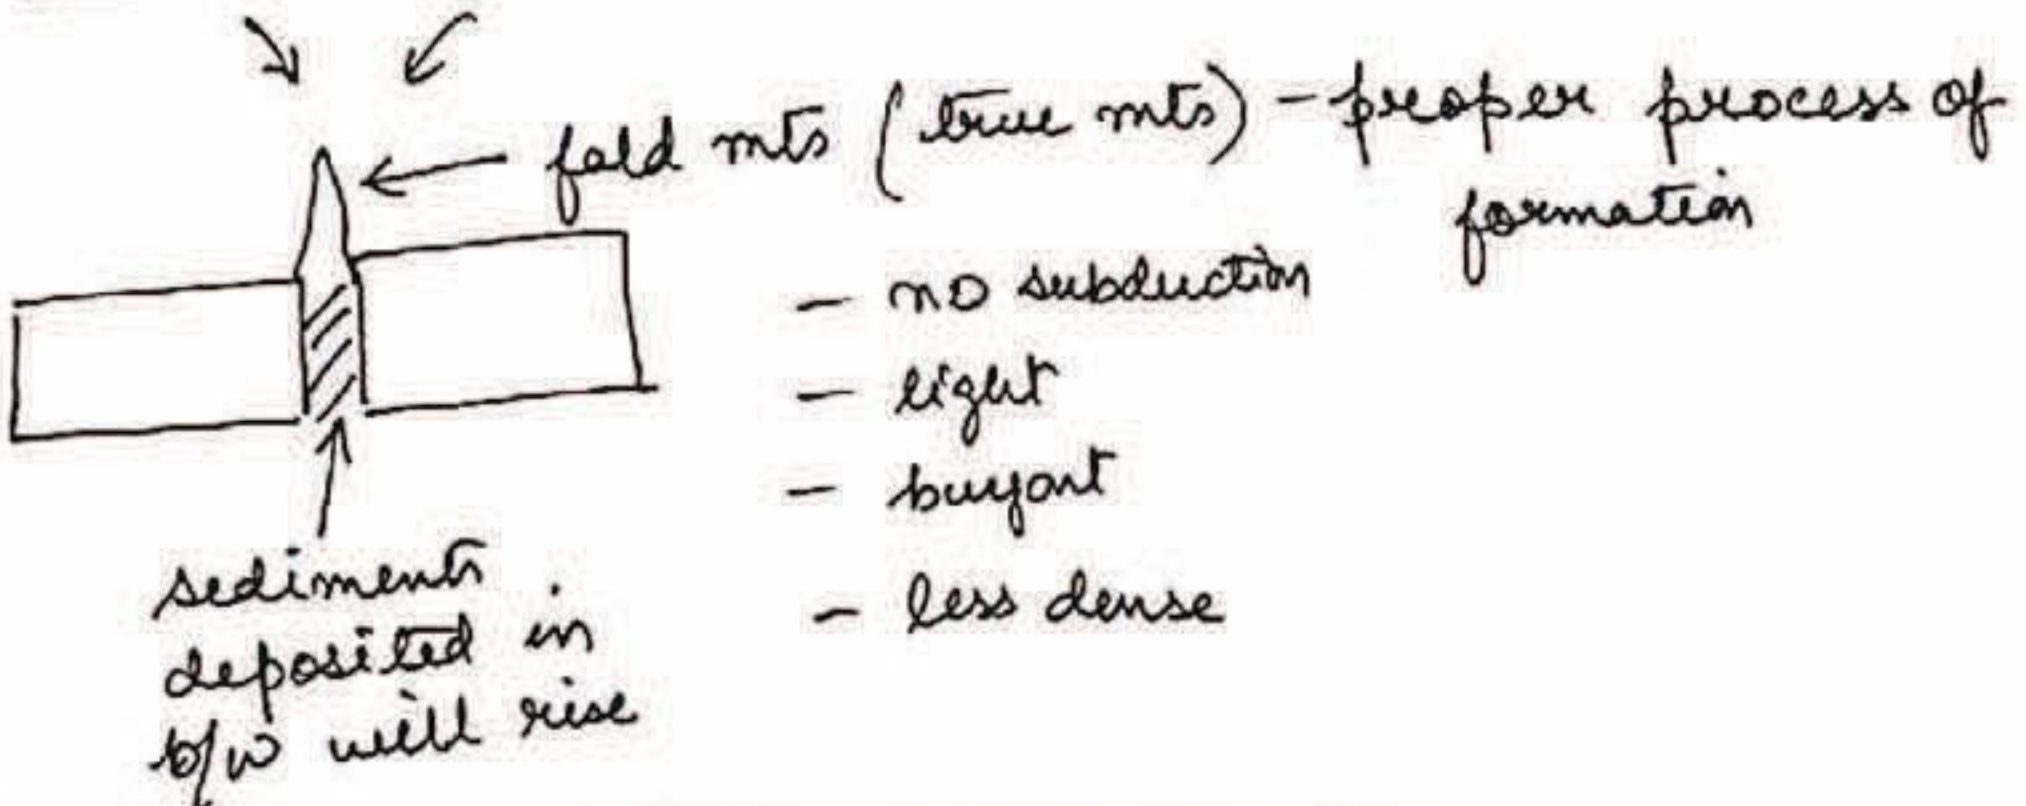 fold mts (true mts) - proper process of
formation
- no subduction
- light
- buyant
- less dense
sediments
deposited in
b/w will rise